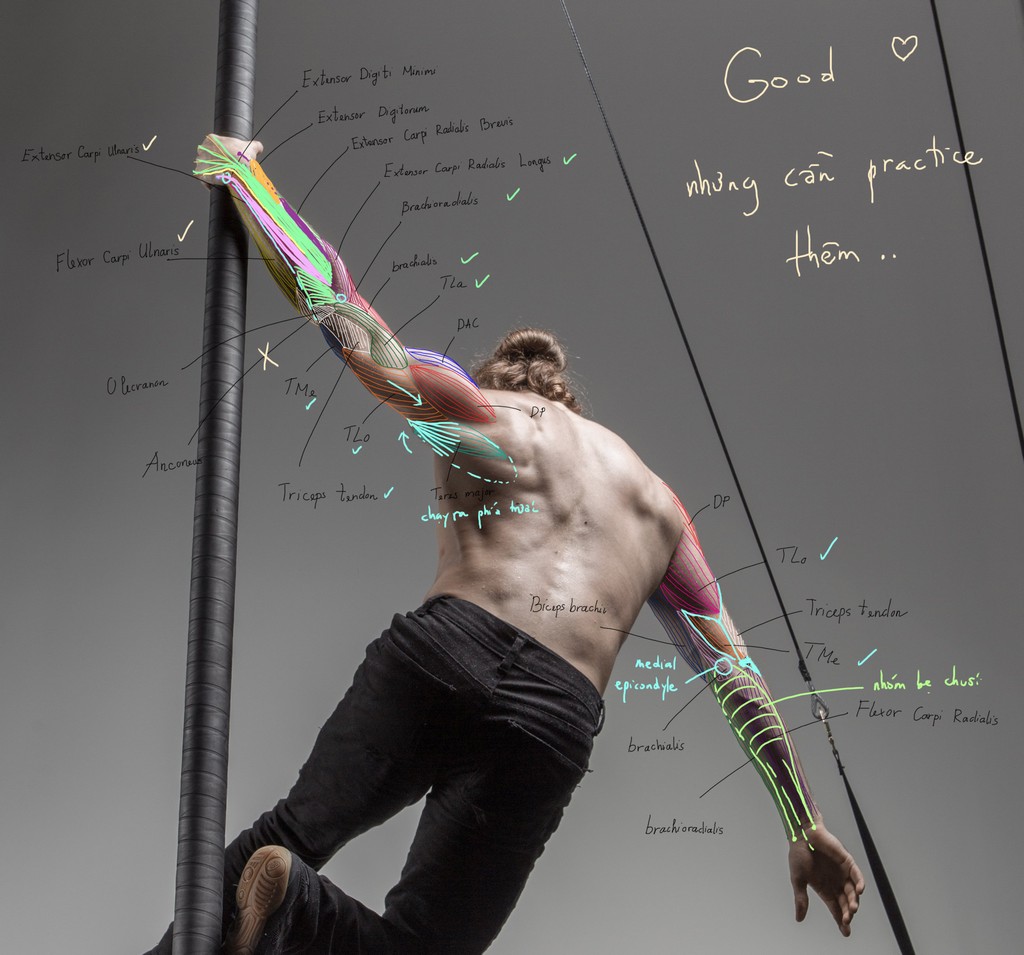 Good ♡
nhưng cần practice
thêm ..
Extensor Digiti Minimi
Extensor Digitorum
Extensor Carpi Radialis Brevis
Extensor Carpi Ulnaris ✓
Extensor Carpi Radialis Longus ✓
Brachioradialis ✓
Flexor Carpi Ulnaris ✓
brachialis ✓
TLa ✓
DAC
Olecranon
X
TMe ✓
DP
TLo ✓
Anconeus
Triceps tendon ✓
Teres major
chạy ra phía trước
DP
TLo ✓
Biceps brachii
Triceps tendon
TMe ✓
medial
epicondyle
nhóm bẹ chuối
Flexor Carpi Radialis
brachialis
brachioradialis